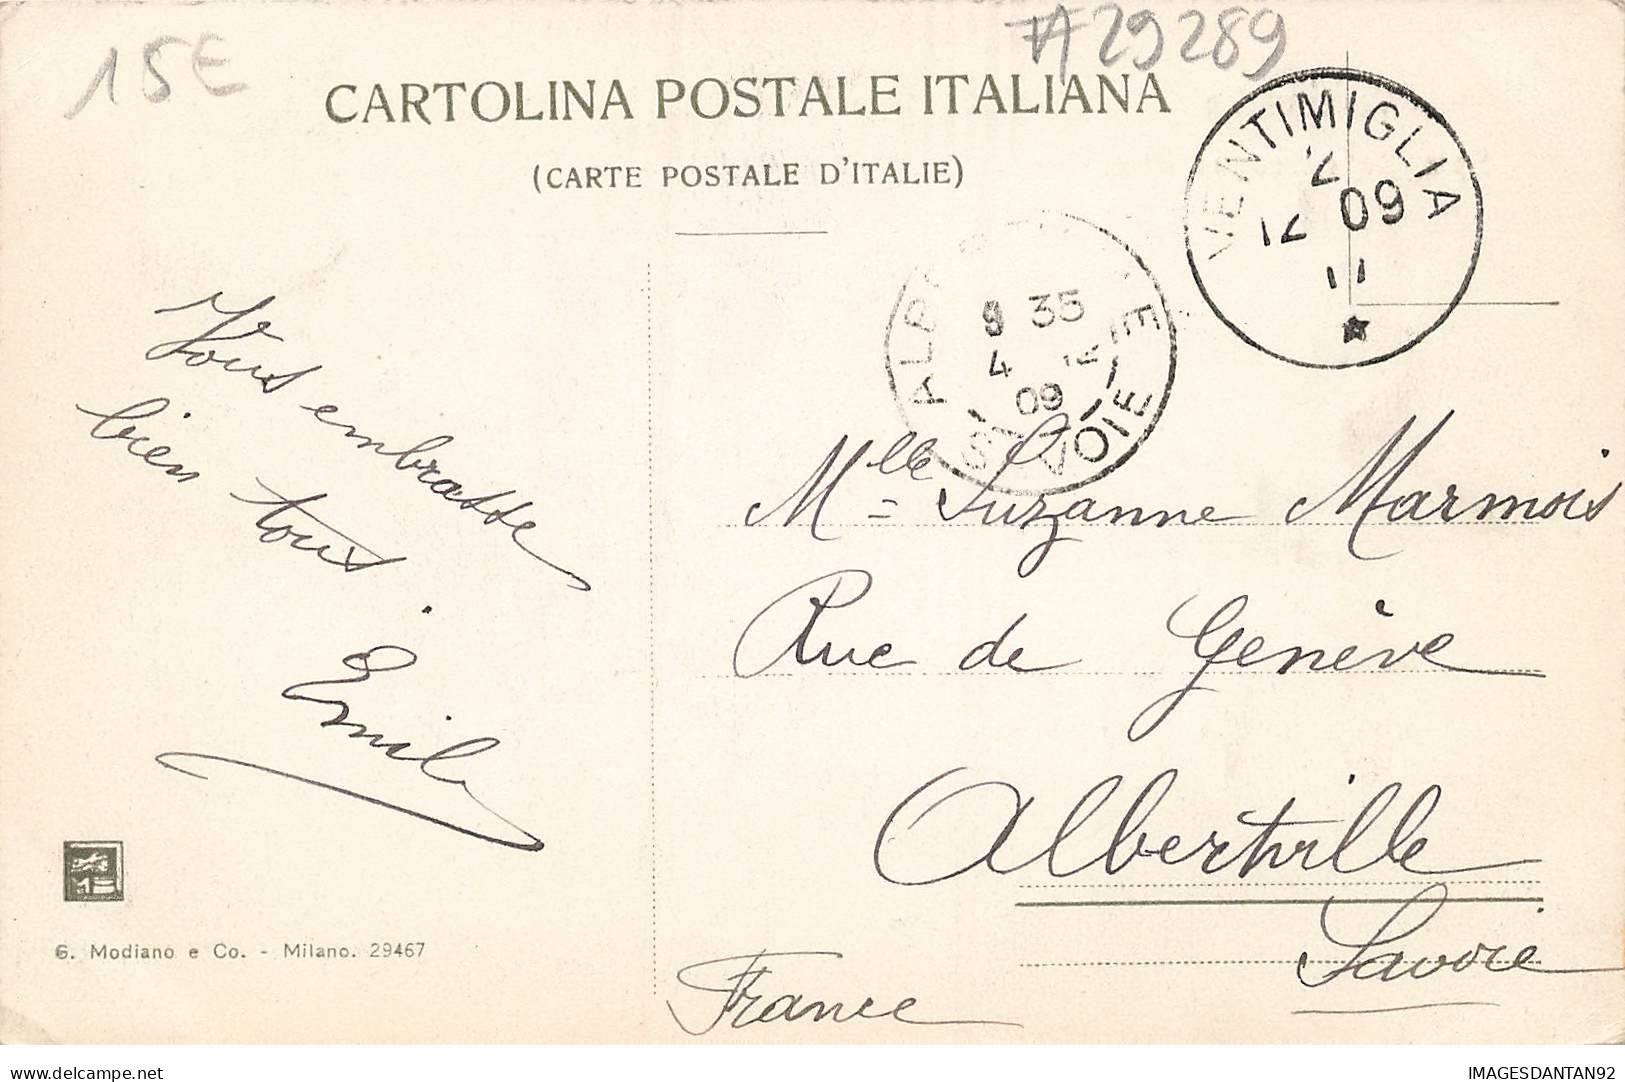 15€
A29289
CARTOLINA POSTALE ITALIANA
(CARTE POSTALE D'ITALIE)
VENTIMIGLIA
2
12 09
11
9 35
4 12
09
Vous embrasse
bien tous.
Emile
Mlle Suzanne Marmois
Rue de Genève
Albertville
Savoie
France
G. Modiano e Co. - Milano. 29467
IMAGESDANTAN92
delcampe.net